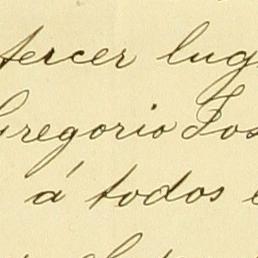 tercer lug
Gregorio Fos
á todos e